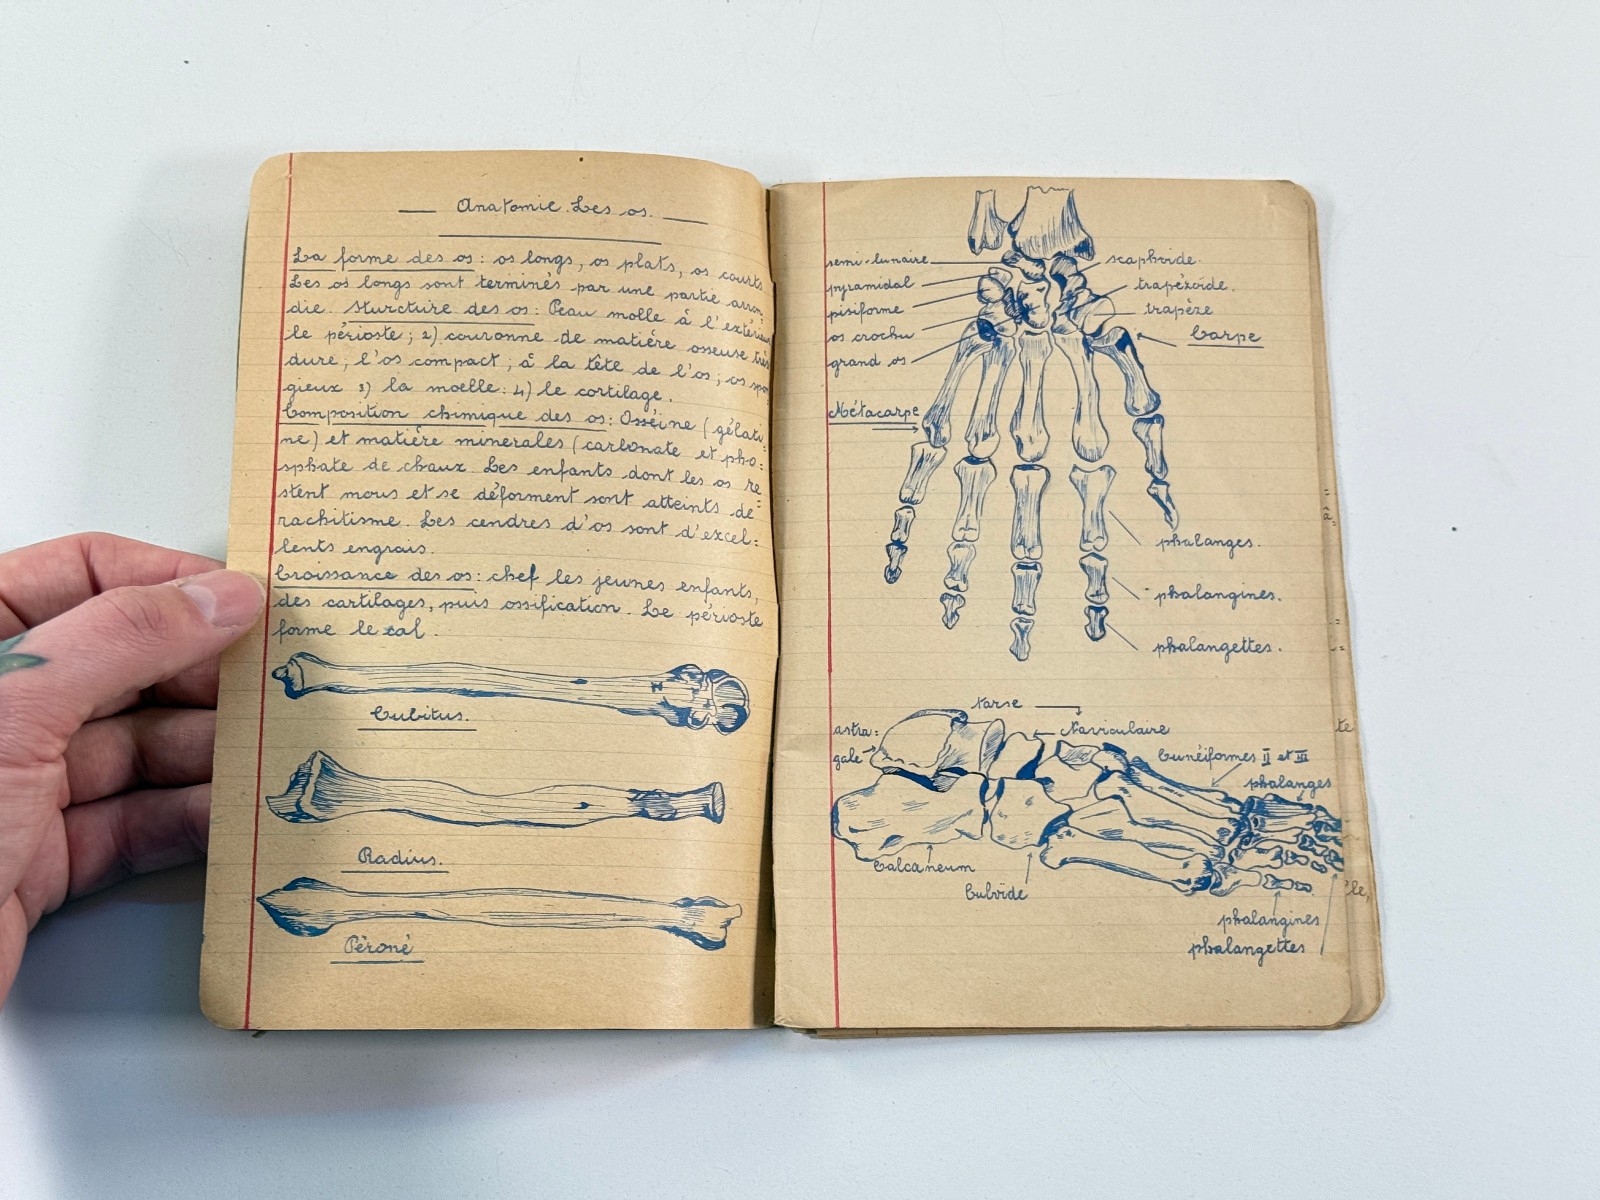 Anatomie. Les os.
La forme des os : os longs, os plats, os courts.
Les os longs sont terminés par une partie arron-
die. Sturcture des os : Peau molle à l'extérieur
le périoste ; 2) couronne de matière osseuse très
dure, l'os compact ; à la tête de l'os ; os spon
gieux 3) la moelle : 4) le cortilage.
Composition chimique des os : Osséine (gélati-
ne) et matière minerales (carbonate et pho=
sphate de chaux. Les enfants dont les os re=
stent mous et se déforment sont atteints de
rachitisme. Les cendres d'os sont d'excel=
lents engrais.
Croissance des os : chef les jeunes enfants,
des cartilages, puis ossification. Le périoste
forme le cal.
Cubitus.
Radius.
Péroné
semi-lunaire
pyramidal
pisiforme
os crochu
grand os
Métacarpe
scaphoide.
trapézoide.
trapèze
Carpe
phalanges.
phalangines.
phalangettes.
Tarse
astra=
gale
Naviculaire
Cunéiformes II et III
phalanges
Calcaneum
Cuboïde
phalangines
phalangettes
te